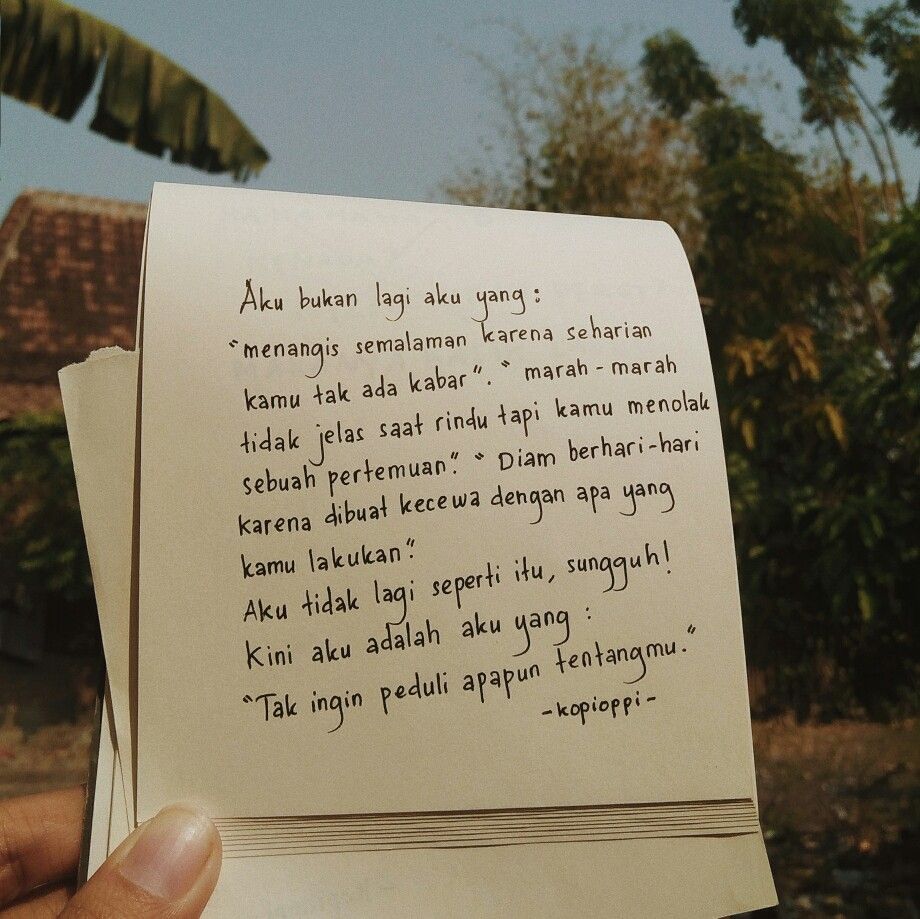 Aku bukan lagi aku yang :
"menangis semalaman karena seharian
kamu tak ada kabar". " marah - marah
tidak jelas saat rindu tapi kamu menolak
sebuah pertemuan". " Diam berhari-hari
karena dibuat kecewa dengan apa yang
kamu lakukan".
Aku tidak lagi seperti itu, sungguh!
Kini aku adalah aku yang :
"Tak ingin peduli apapun tentangmu."
-kopioppi-